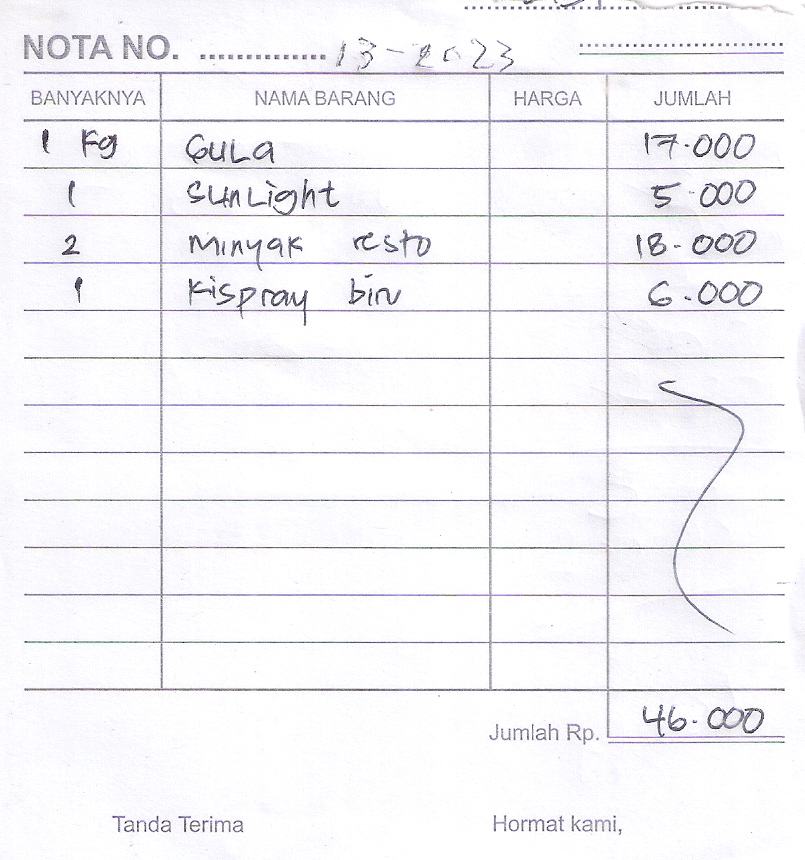 NOTA NO. ................ 13-2-2023
BANYAKNYA NAMA BARANG HARGA JUMLAH
1 Kg GULA 17.000
1 SUNLight 5.000
2 Minyak resto 18.000
1 Kispray biru 6.000
Jumlah Rp. 46.000
Tanda Terima Hormat kami,